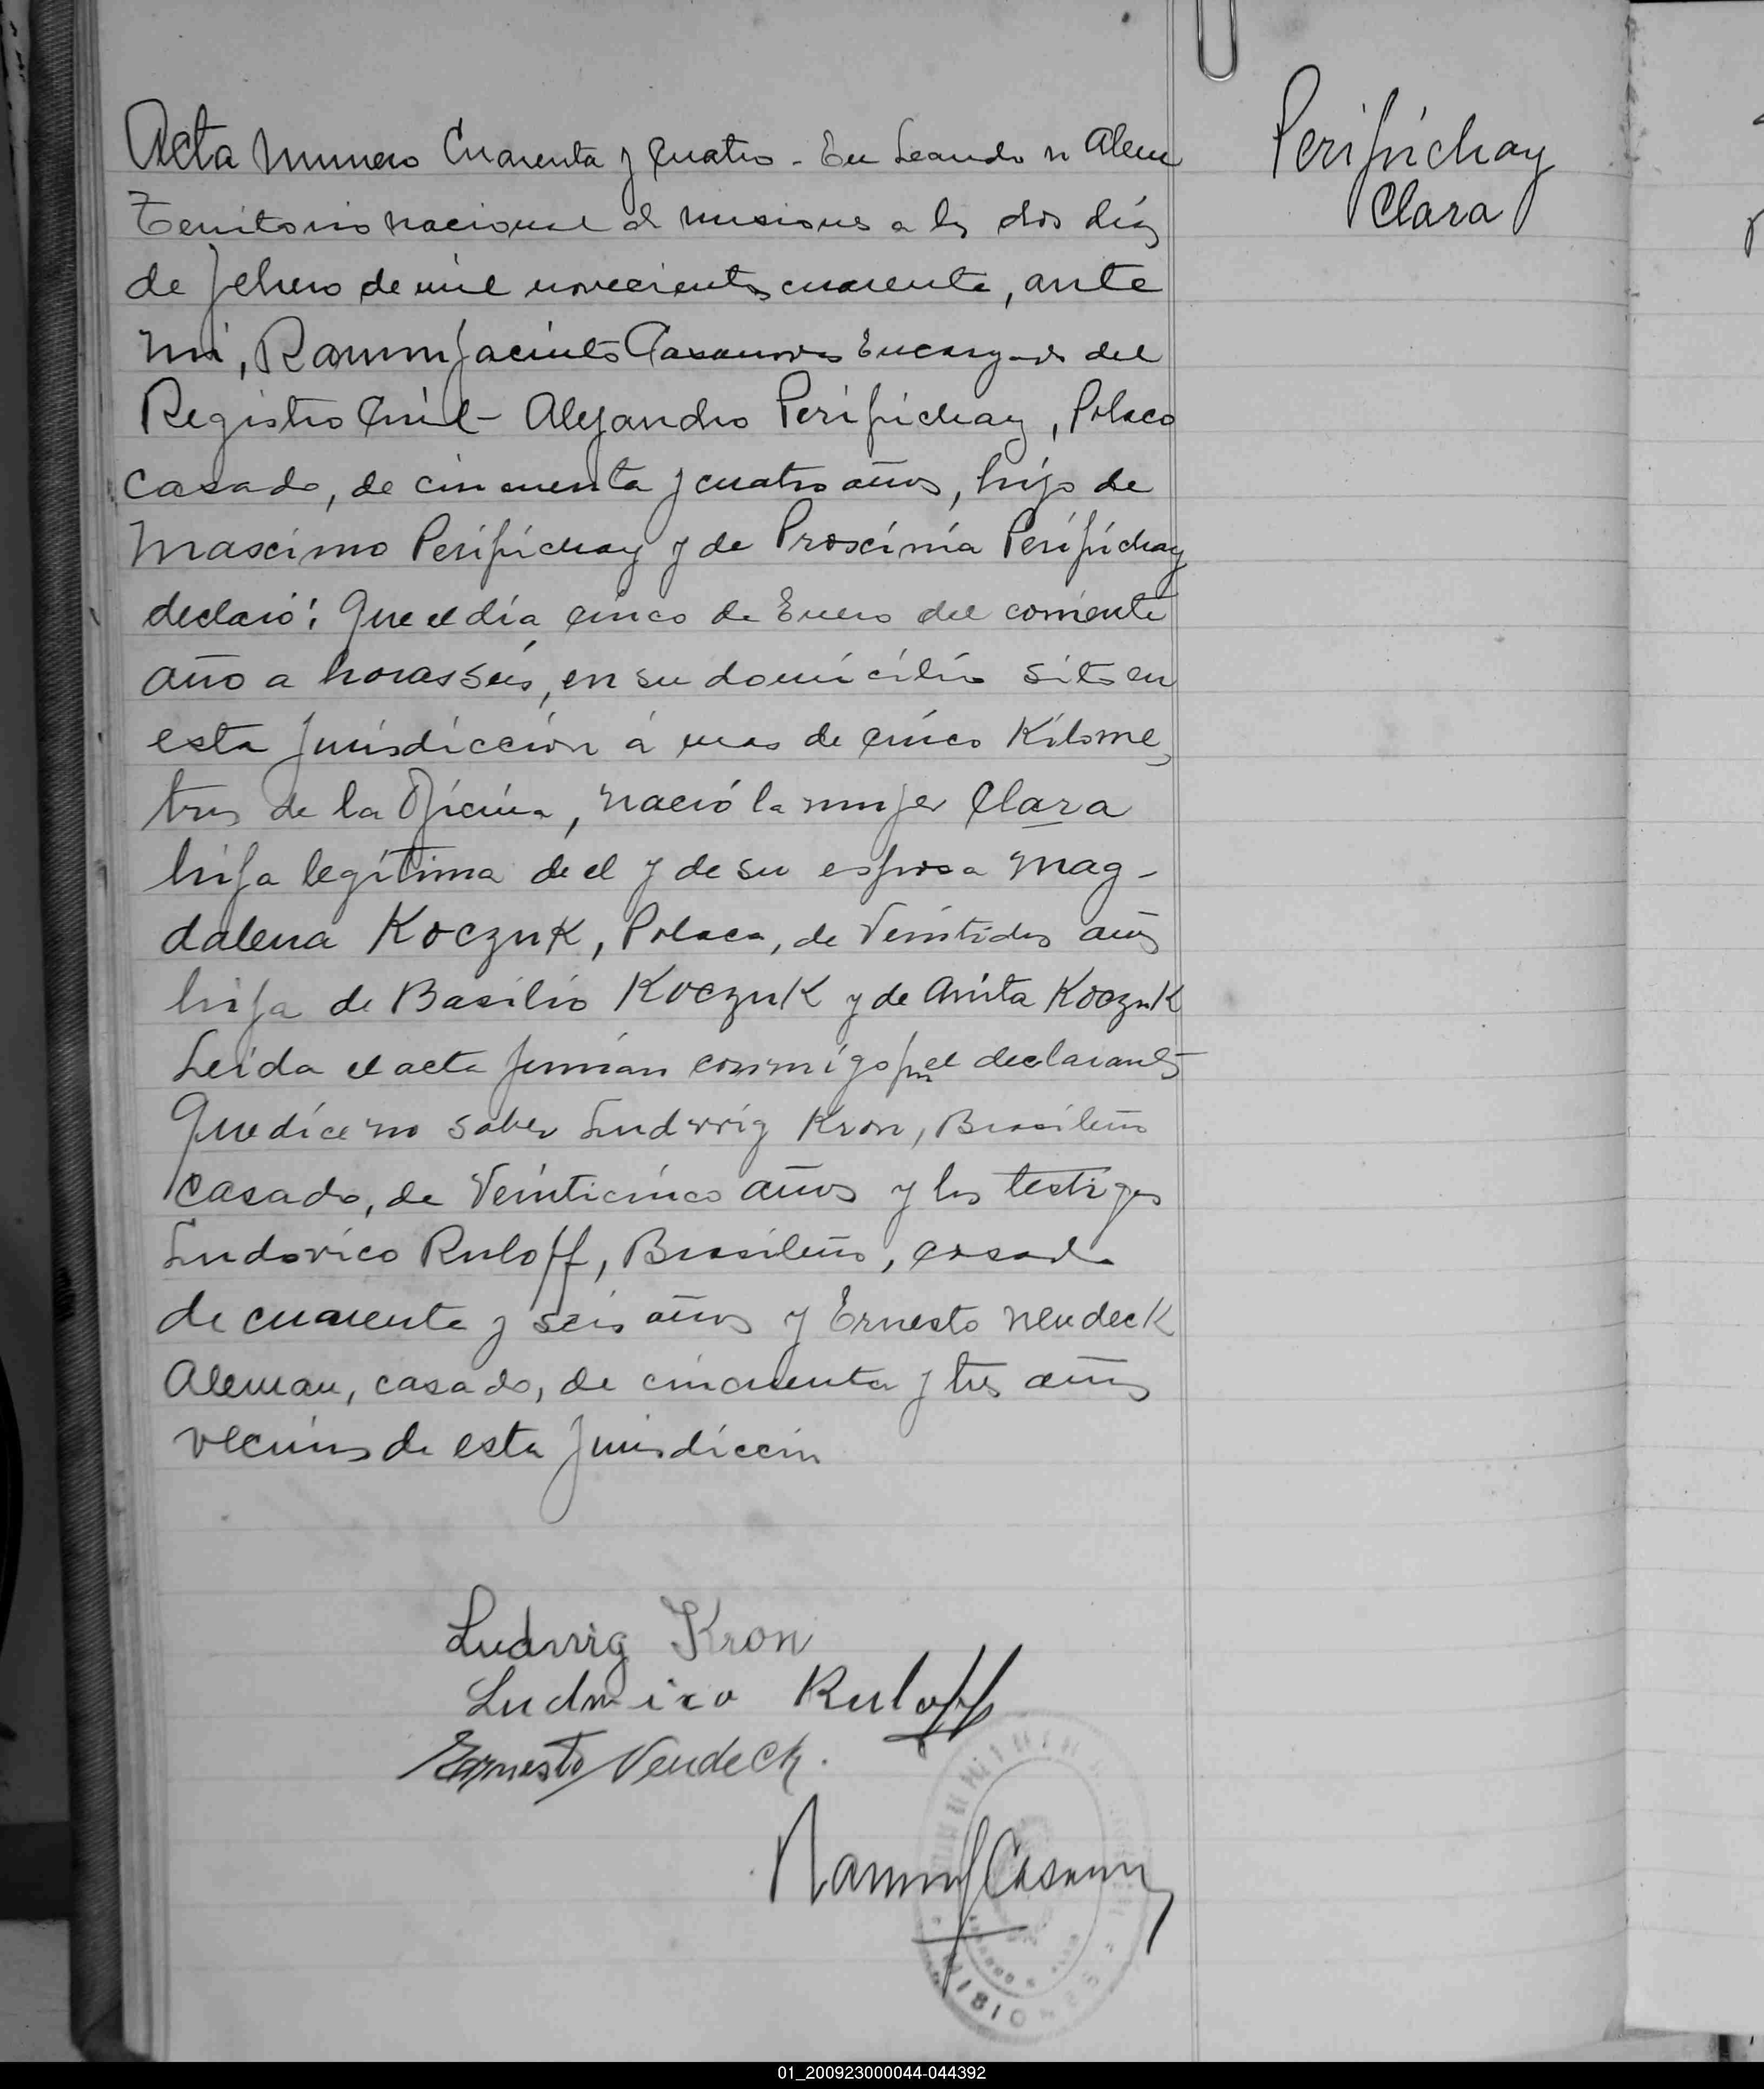 Acta Numero Cuarenta y Cuatro - En Leandro N Alem
Territorio Nacional de Misiones a los dos días
de febrero de mil novecientos cuarenta, ante
mi, Ramon Jacinto Casanova Encargado del
Registro Civil - Alejandro Peripichay, Polaco
casado, de cincuenta y cuatro años, hijo de
Mascimo Peripichay y de Proscimia Peripichay
declaró: Que el día cinco de Enero del corriente
año a horas seis, en su domicilio sito en
esta jurisdicción á mas de cinco Kilome
tros de la Oficina, nació la mujer Clara
hija legítima de el y de su esposa Mag-
dalena Koczuk, Polaca, de veintidos años
hija de Basilio Koczuk y de Anita Koczuk
Leída el acta firman conmigo por el declarante
que dice no saber Ludwig Kron, Brasileño
casado, de veinticinco años y los testigos
Ludovico Ruloff, Brasileño, casado
de cuarenta y seis años y Ernesto Neudeck
Aleman, casado, de cincuenta y tres años
vecinos de esta jurisdicción
Ludwig Kron
Ruloff
Ernesto Neudeck.
Ramon J Casanova
Peripichay
Clara
01_200923000044-044392